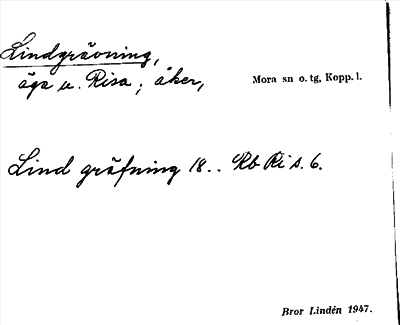 Lindgrävning,
äga u. Risa; åker,
Mora sn o. tg, Kopp. l.
Lind gräfning 18.. Rb Ri s. 6.
Bror Lindén 1947.